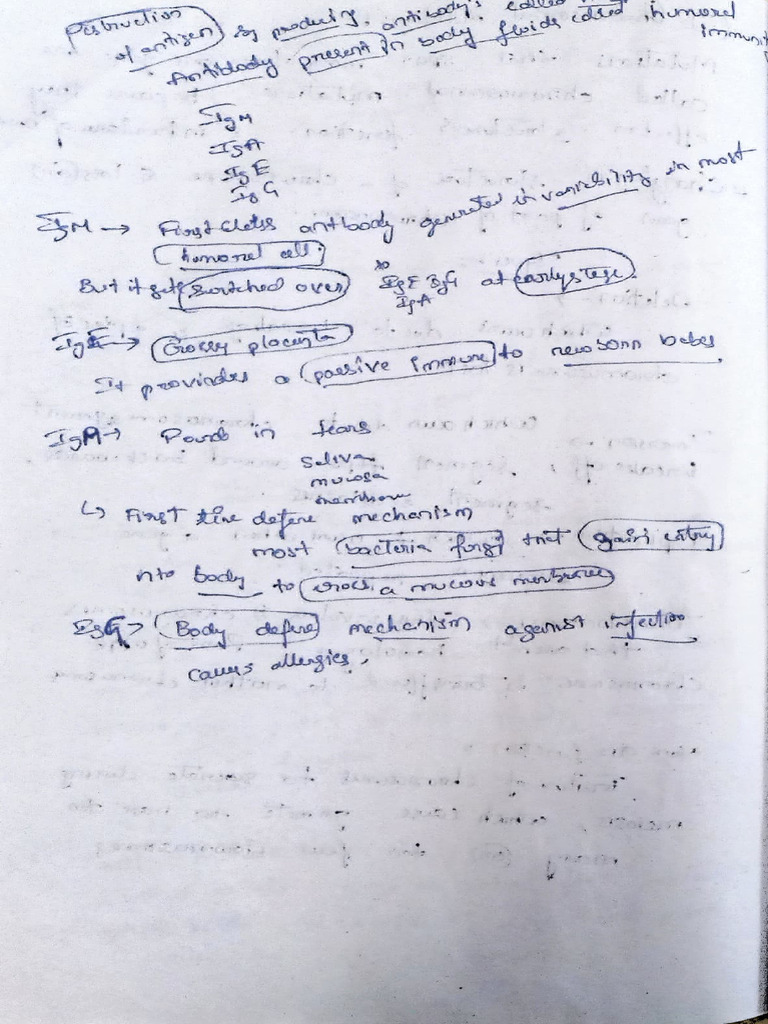 Destruction of antigen by producing antibody's called
Antibody present in body fluids called humoral immunity
IgM
IgA
IgE
IgG
IgM → First class antibody generated in variability in most
humoral cell.
But it gets switched over to IgE IgG at early stage.
IgA
→ Crossy placenta
It provides a passive immune to newborn babes.
IgA → Found in tears
Saliva
mucosa
↳ First line defene mechanism
most bacteria fungi that gain entry
nto body to cross a mucous membranes
IgG → Body defene mechanism against infection
causes allergies.